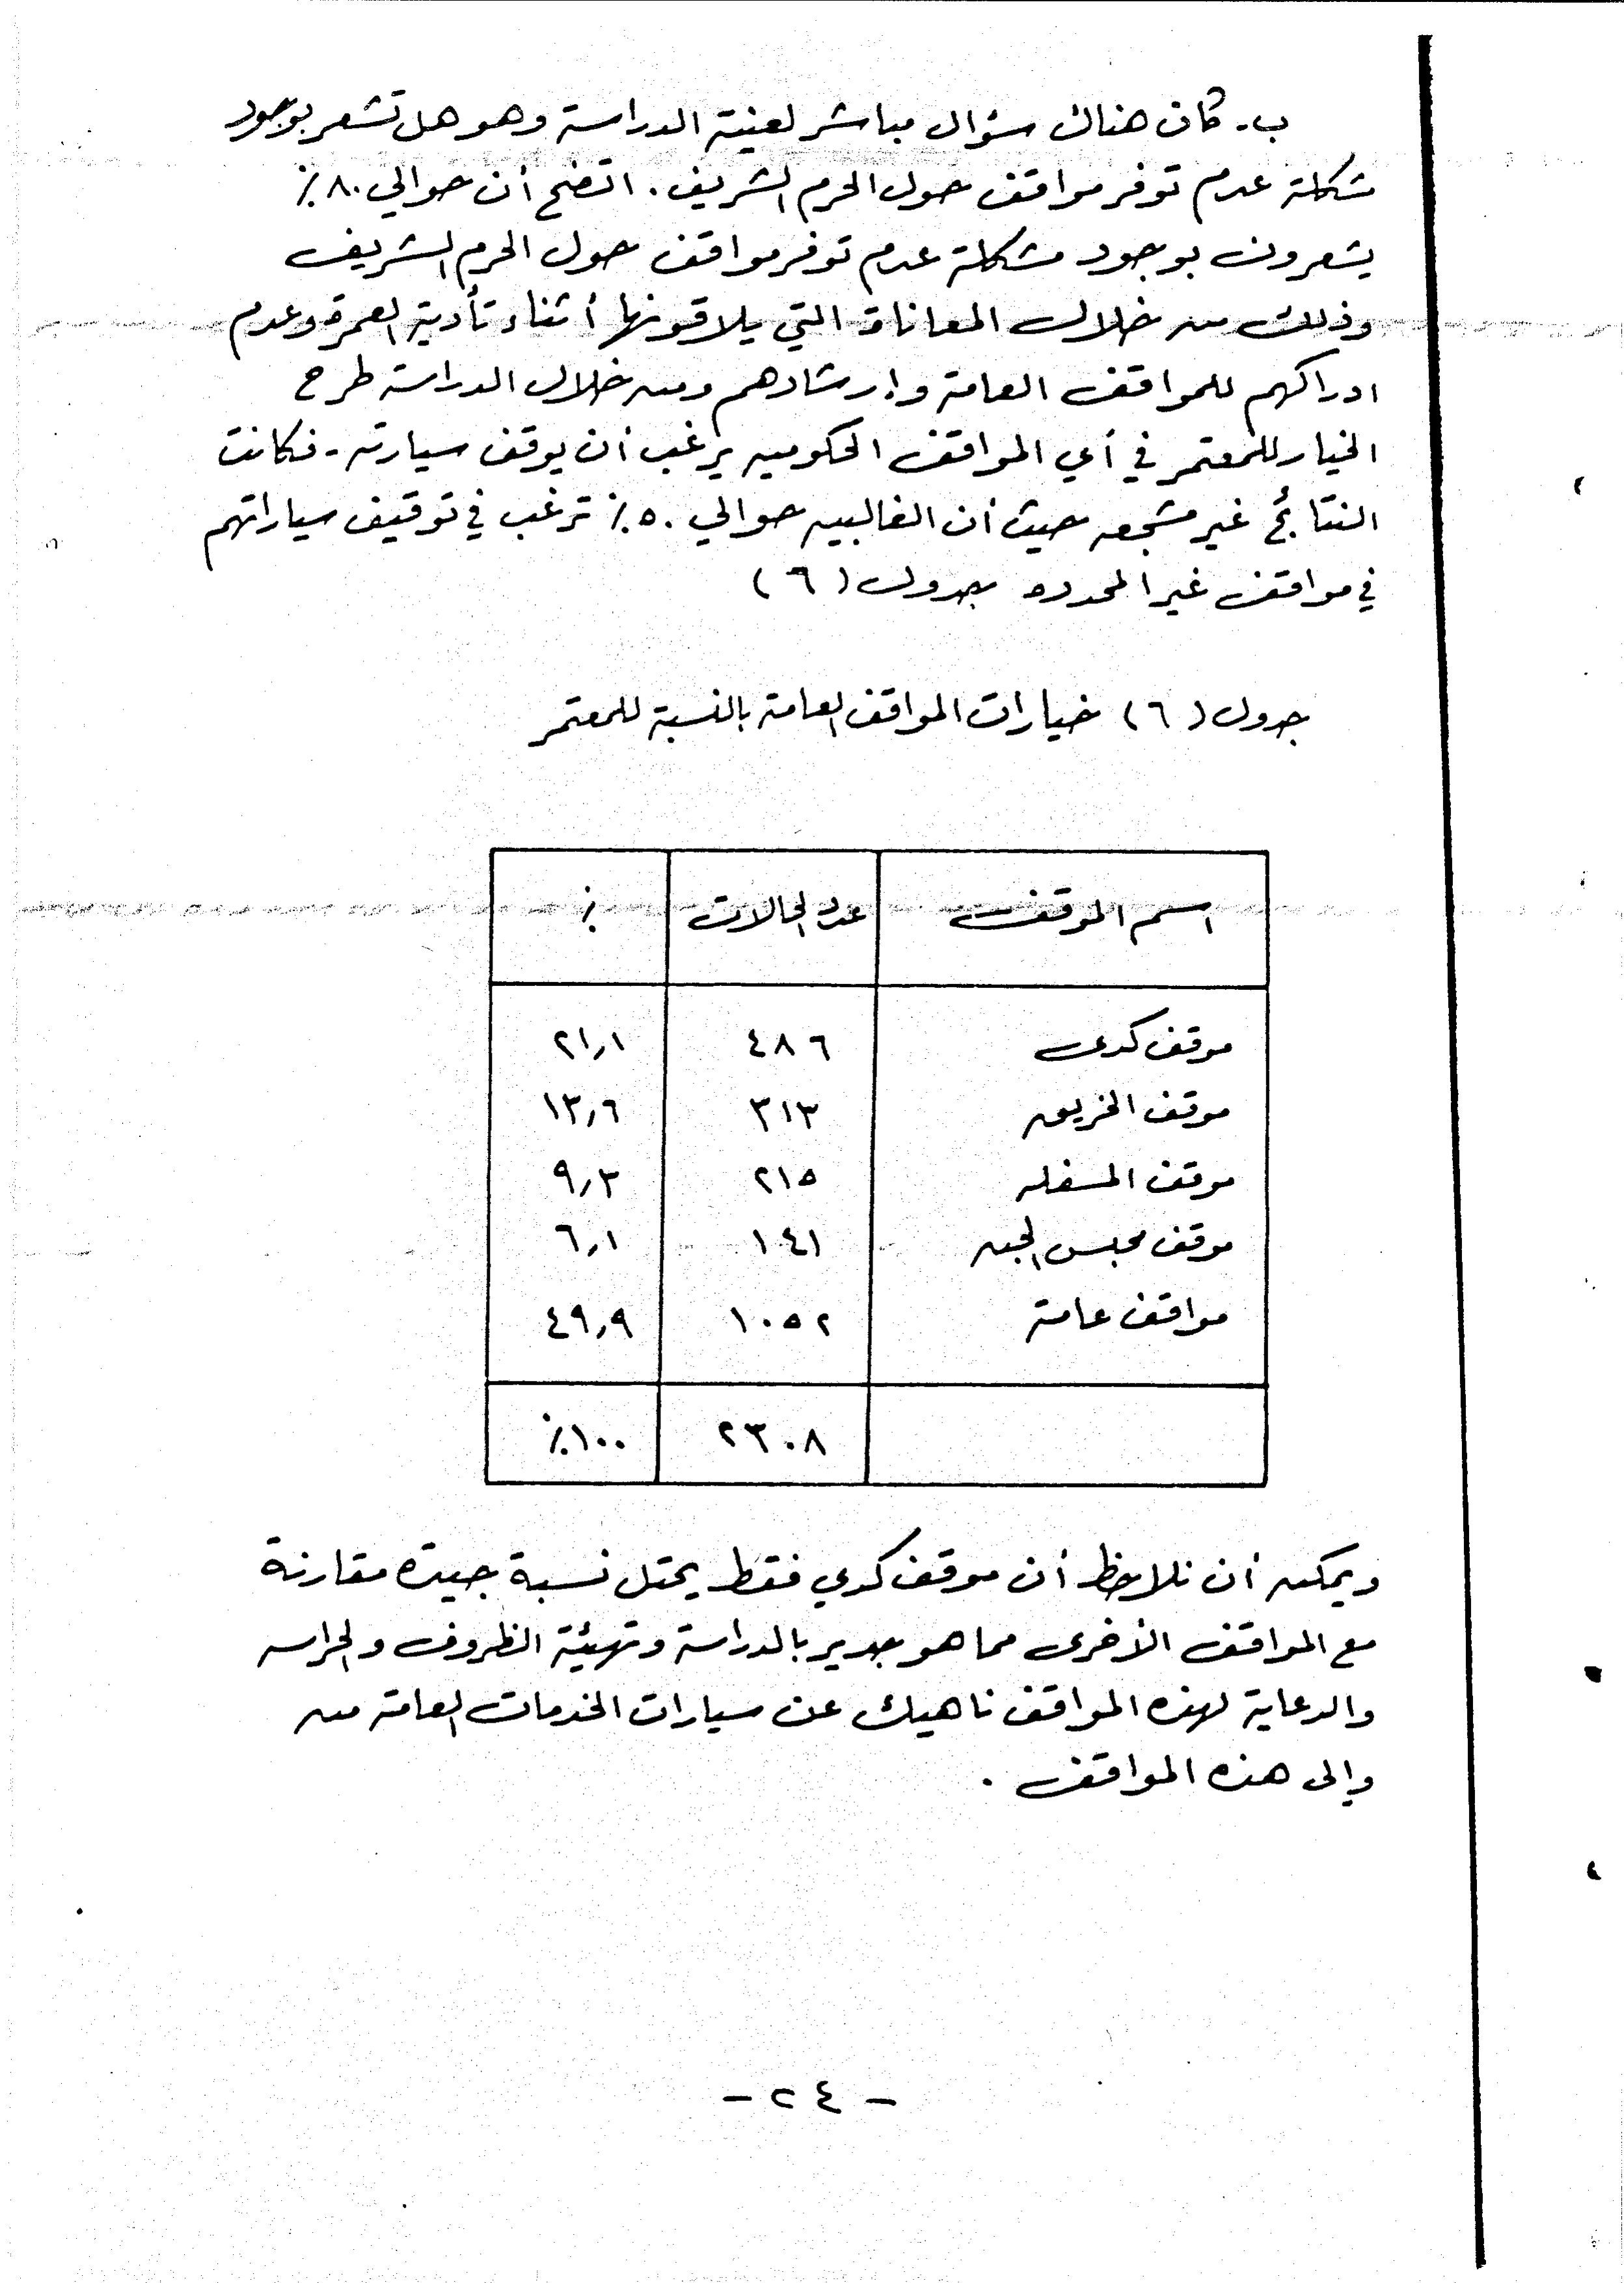 ب- كان هناك سؤال مباشر لعينة الدراسة وهو هل تشعر بوجود
مشكلة عدم توفر مواقف حول الحرم الشريف . اتضح أن حوالي ٨٠٪
يشعرون بوجود مشكلة عدم توفر مواقف حول الحرم الشريف
وذلك من خلال المعاناة التي يلاقونها أثناء تأدية العمرة وعدم
ادراكهم للمواقف العامة وإرشادهم ومن خلال الدراسة طرح
الخيار للمعتمر في أي المواقف الحكوميه يرغب أن يوقف سيارته - فكانت
النتائج غير مشجعه حيث أن الغالبيه حوالي ٥٠٪ ترغب في توقيف سياراتهم
في مواقف غير المحدده جدول (٦)
جدول (٦) خيارات المواقف العامة بالنسبة للمعتمر
اسم الموقف عدد الحالات ٪
موقف كدى ٤٨٦ ٢١٫١
موقف الخريق ٣١٣ ١٣٫٦
موقف المسفله ٢١٥ ٩٫٣
موقف مجلس الجن ١٤١ ٦٫١
مواقف عامة ١٠٥٢ ٤٩٫٩
٢٣٠٨ ١٠٠٪
ويمكن أن نلاحظ أن موقف كدي فقط يحتل نسبة جيدة مقارنة
مع المواقف الأخرى مما هو جدير بالدراسة وتهيئة الظروف والحراسه
والدعاية لهذه المواقف ناهيك عن سيارات الخدمات العامة من
وإلى هذه المواقف .
- ٢٤ -